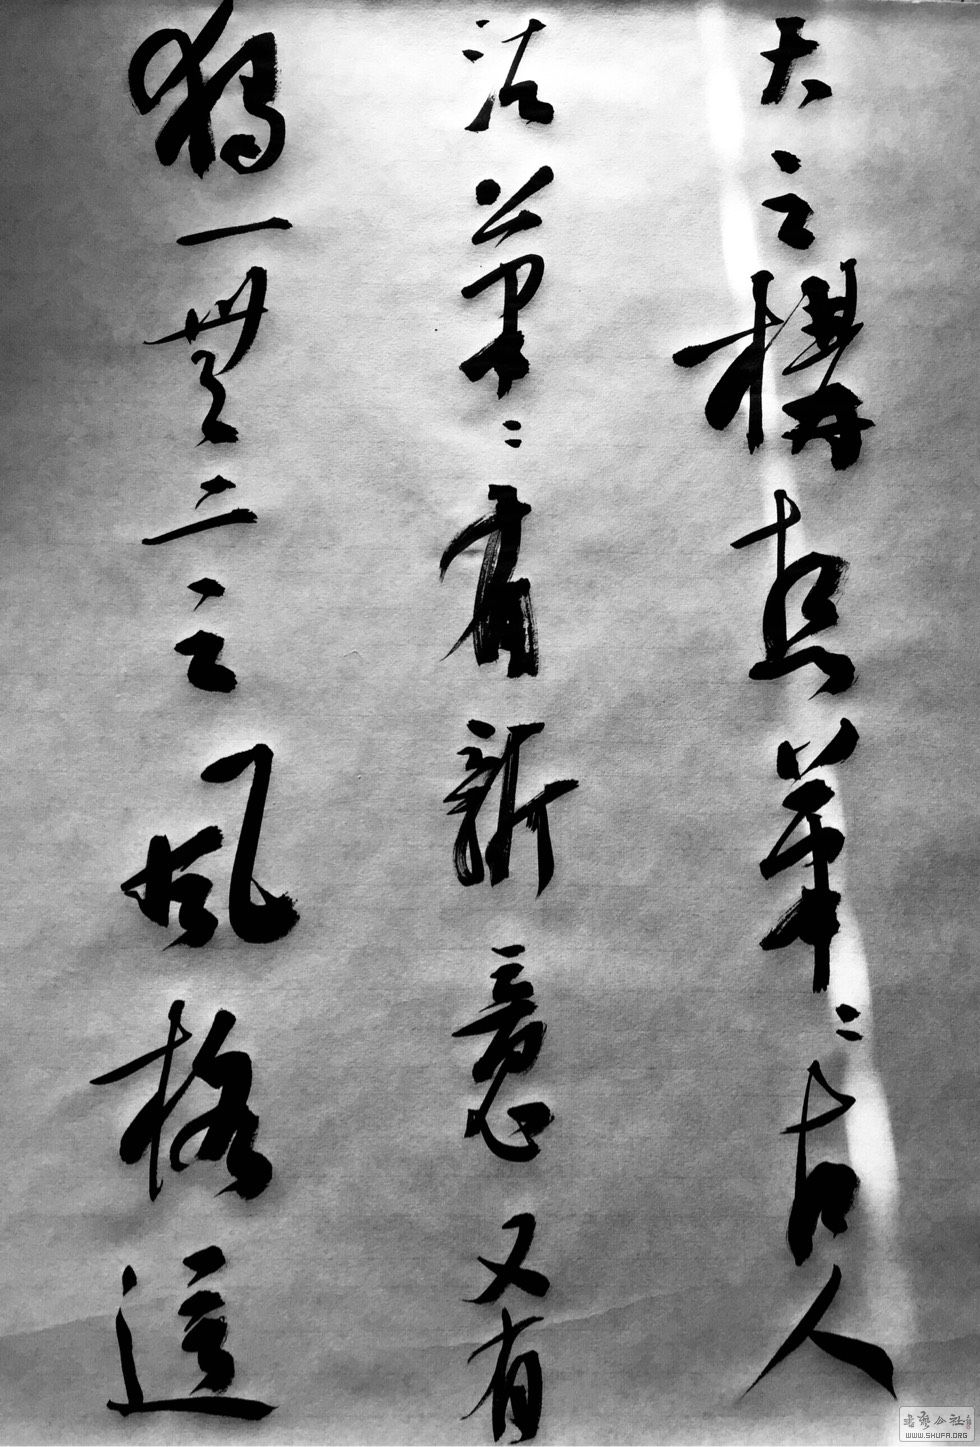 天之構直筆〻古人
法筆〻有新意又有
獨一無二之風格這
書藝公社
WWW.SHUFA.ORG